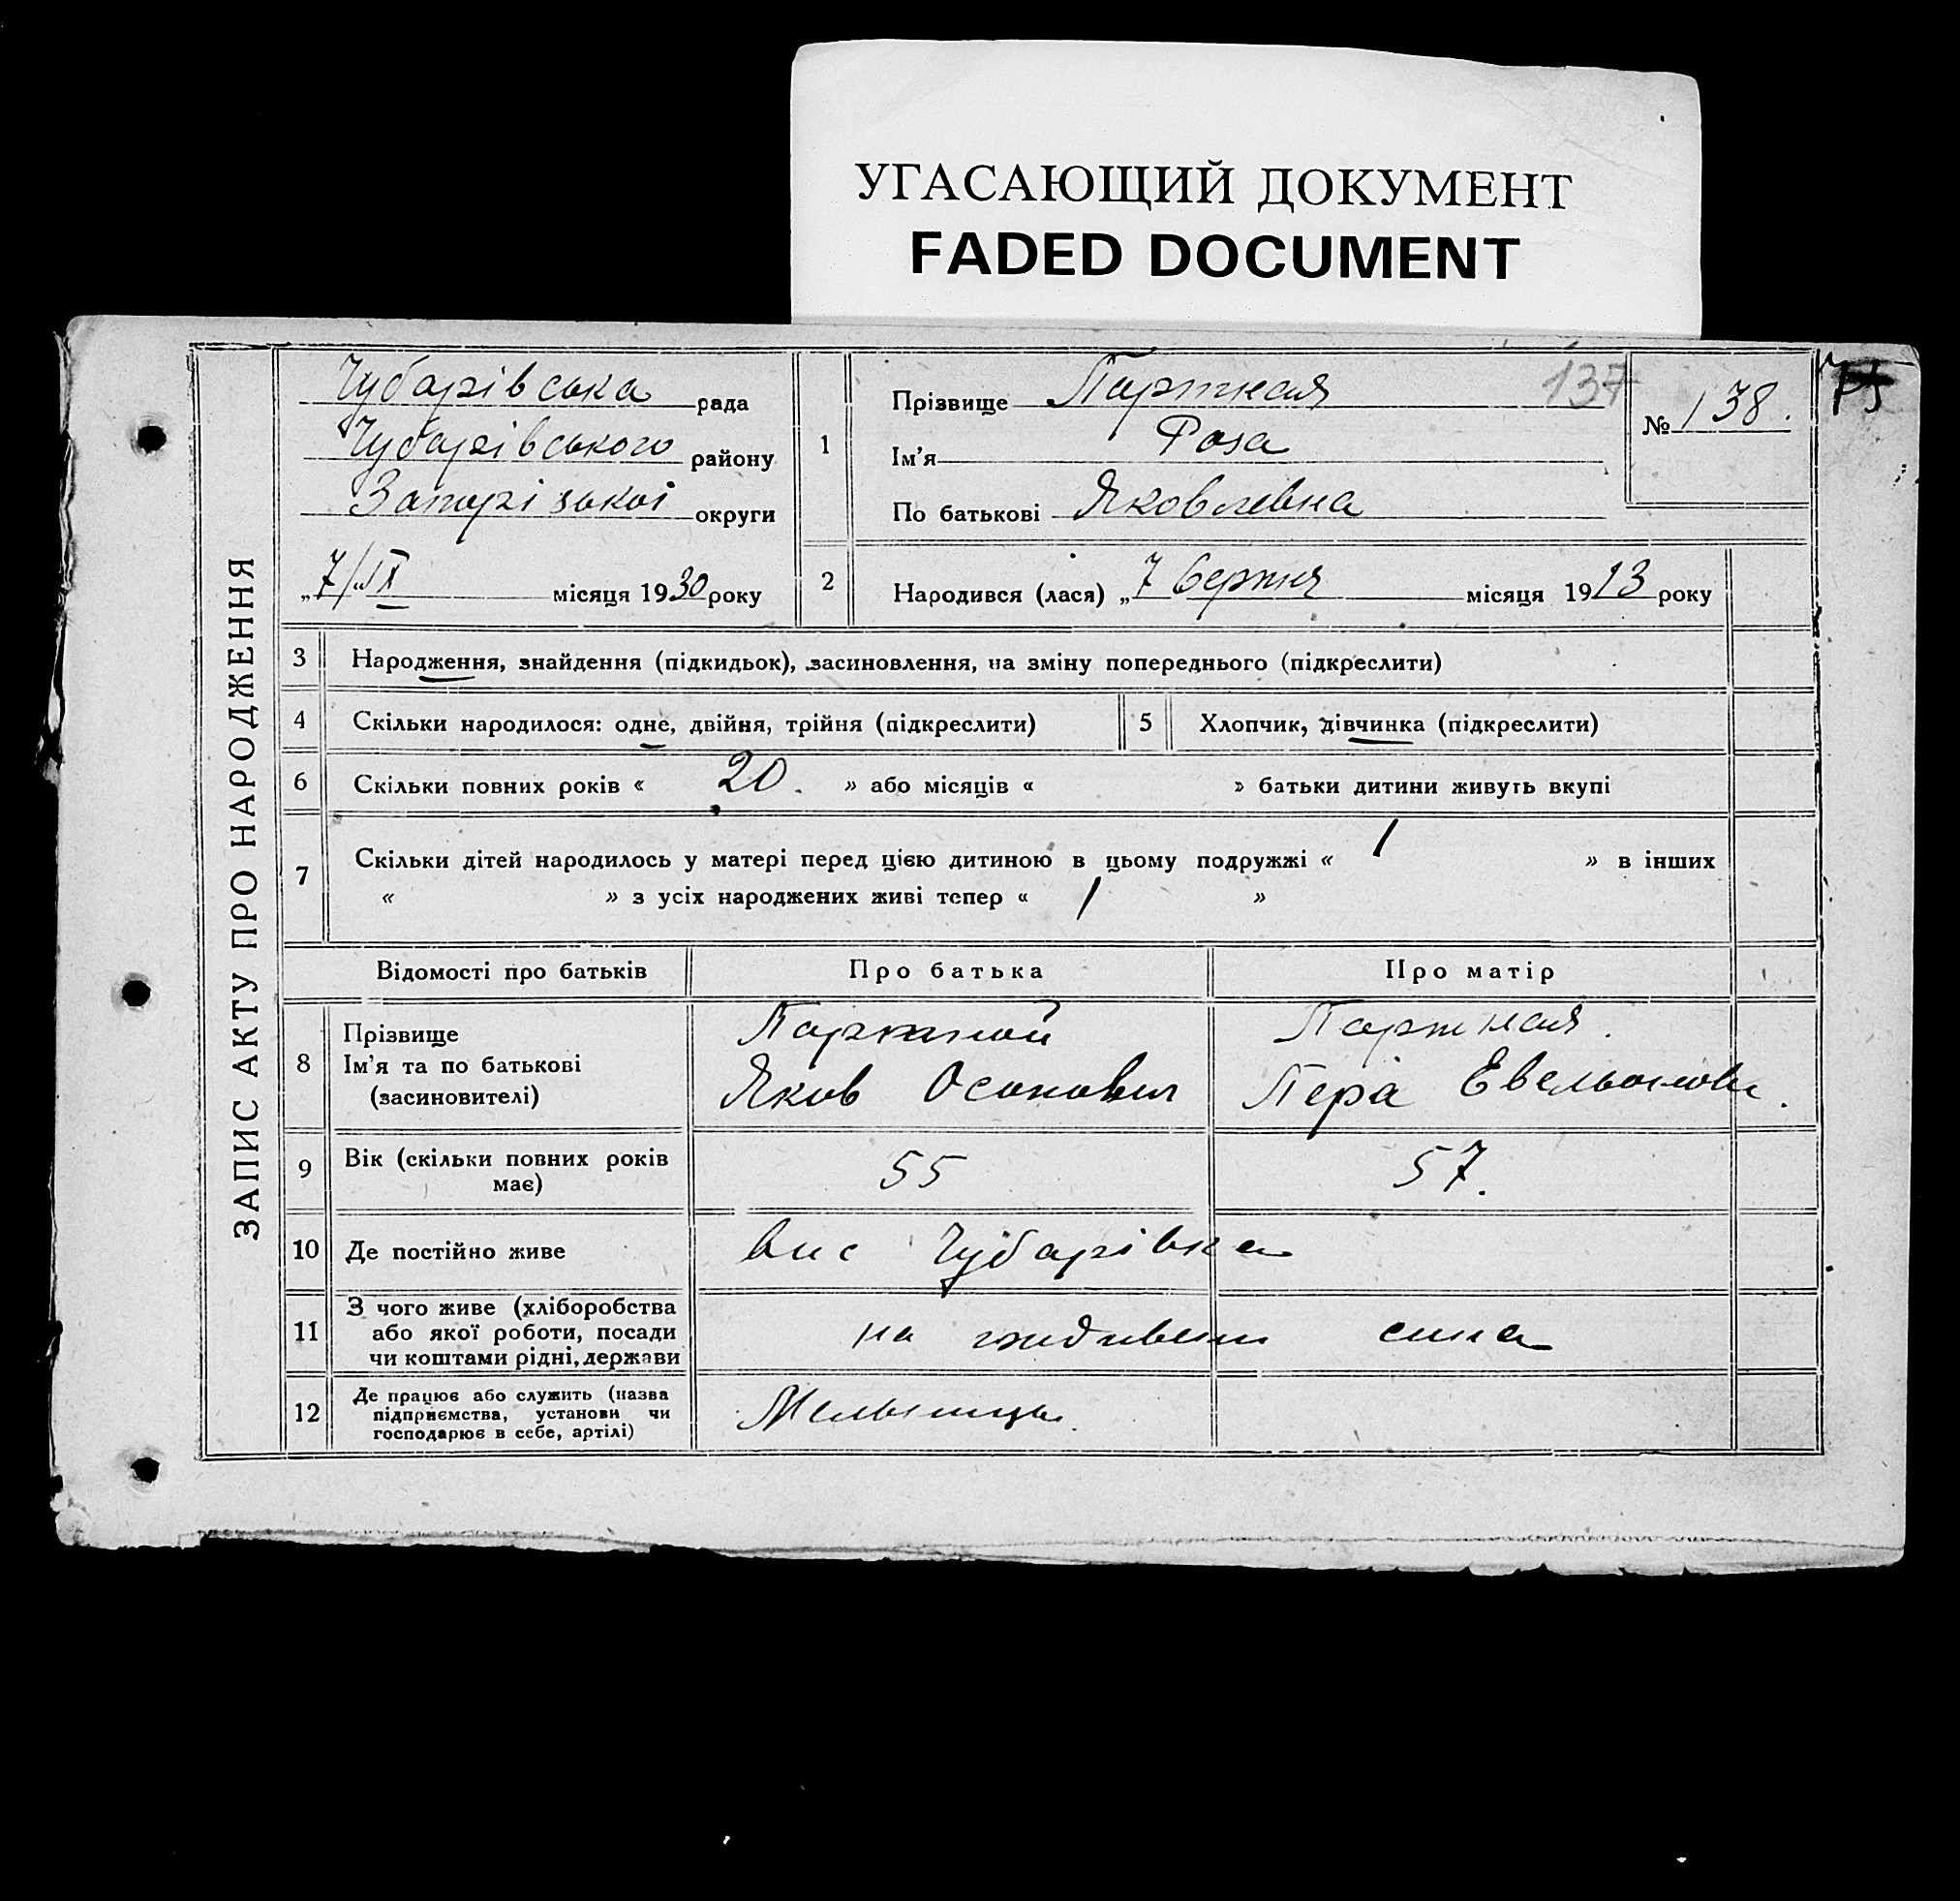 УГАСАЮЩИЙ ДОКУМЕНТ
FADED DOCUMENT
ЗАПИС АКТУ ПРО НАРОДЖЕННЯ
Чубарівська рада
Чубарівського району
Запорізької округи
„7/„IX місяця 1930 року
1
Прізвище Партная 137
Ім'я Роза
По батькові Яковлевна
№ 138.
2
Народився (лася) „7 Серпня місяця 1913 року
3 Народження, знайдення (підкидьок), засиновлення, на зміну попереднього (підкреслити)
4 Скільки народилося: одне, двійня, трійня (підкреслити)
5 Хлопчик, дівчинка (підкреслити)
6 Скільки повних років « 20. » або місяців « » батьки дитини живуть вкупі
7 Скільки дітей народилось у матері перед цією дитиною в цьому подружжі « 1 » в інших
« » з усіх народжених живі тепер « 1 »
Відомості про батьків Про батька Про матір
8 Прізвище
Ім'я та по батькові
(засиновителі)
Партной
Яков
Партная.
Пера
9 Вік (скільки повних років
має)
55 57.
10 Де постійно живе Чубарівка
11 З чого живе (хліборобства
або якої роботи, посади
чи коштами рідні, держави
на сина
12 Де працює або служить (назва
підприємства, установи чи
господарює в себе, артілі)